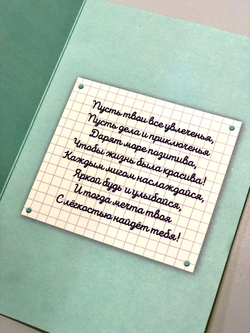 Пусть твои все увлеченья,
Пусть дела и приключенья
Дарят море позитива,
Чтобы жизнь была красива!
Каждым мигом наслаждайся,
Яркой будь и улыбайся,
И тогда мечта твоя
С лёгкостью найдёт тебя!